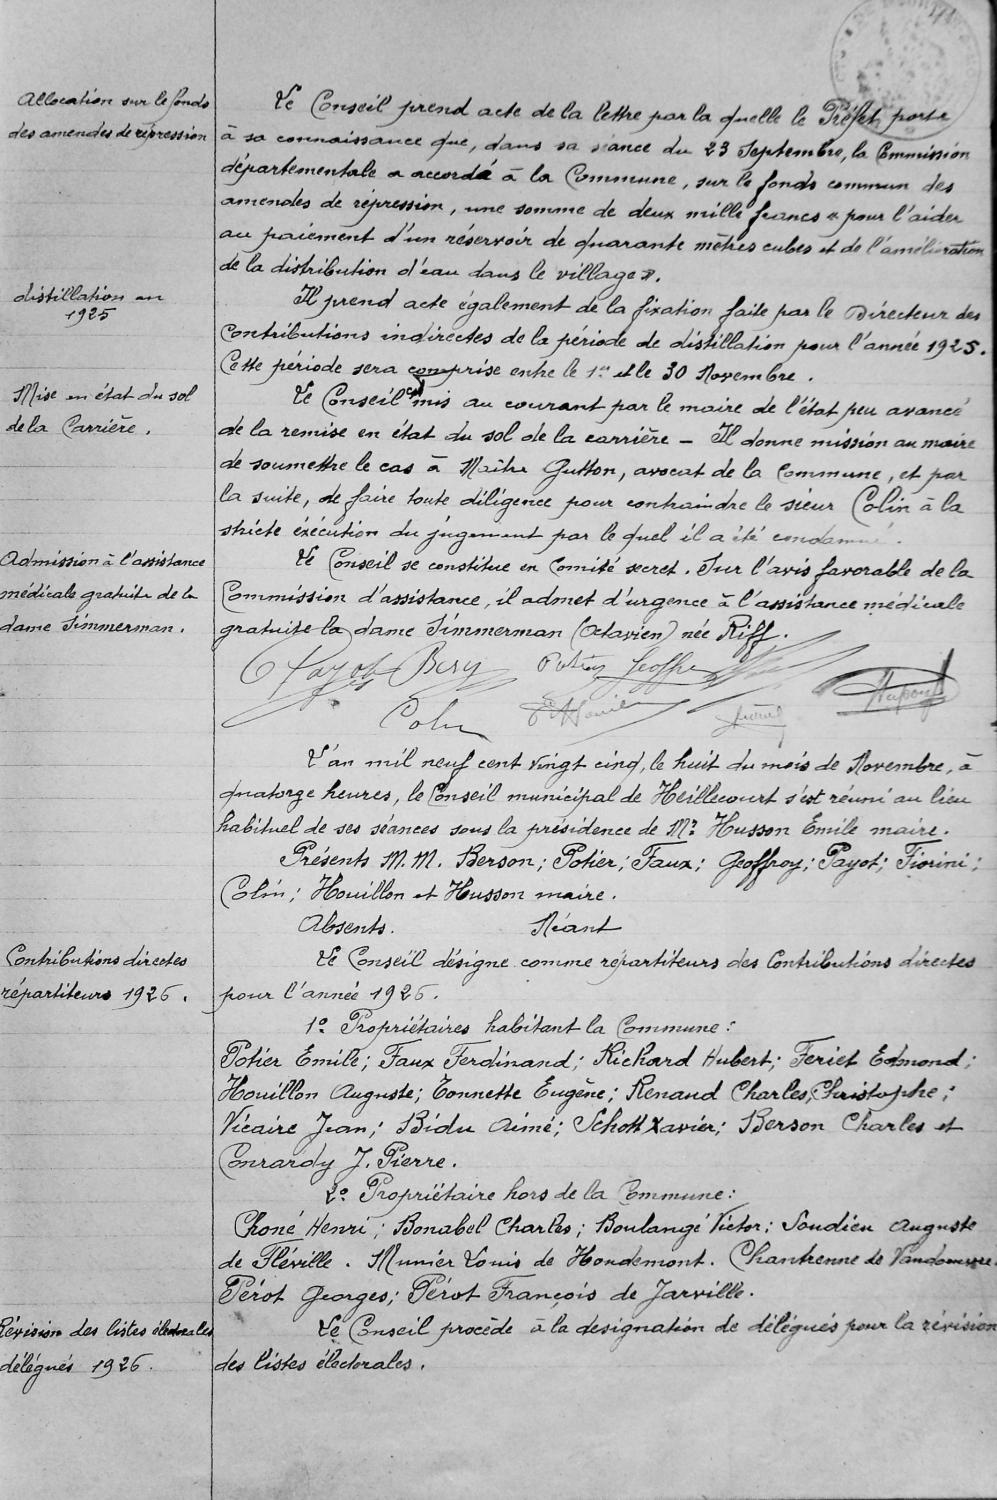 Allocation sur le fonds
des amendes de répression
Le Conseil prend acte de la lettre par la quelle le Préfet porte
à sa connaissance que, dans sa séance du 23 Septembre, la Commission
départementale a accordé à la Commune, sur le fonds commun des
amendes de répression, une somme de deux mille francs « pour l'aider
au paiement d'un réservoir de quarante mètres cubes et de l'amélioration
de la distribution d'eau dans le village ».
distillation en
1925
Il prend acte également de la fixation faite par le Directeur des
Contributions indirectes de la période de distillation pour l'année 1925.
Cette période sera comprise entre le 1er et le 30 Novembre.
Mise en état du sol
de la Carrière.
Le Conseil est mis au courant par le maire de l'état peu avancé
de la remise en état du sol de la carrière – Il donne mission au maire
de soumettre le cas à Maître Gutton, avocat de la Commune, et par
la suite, de faire toute diligence pour contraindre le sieur Colin à la
stricte éxécution du jugement par le quel il a été condamné.
Admission à l'assistance
médicale gratuite de la
dame Simmerman.
Le Conseil se constitue en Comité secret. Sur l'avis favorable de la
Commission d'assistance, il admet d'urgence à l'assistance médicale
gratuite la dame Simmerman (Octavien) née Riff.
Payot Potier Geoffroy
Colin Houillon
L'an mil neuf cent vingt cinq, le huit du mois de Novembre, à
quatorze heures, le Conseil municipal de Heillecourt s'est réuni au lieu
habituel de ses séances sous la présidence de Mr Husson Emile maire.
Présents M.M. Berson; Potier; Faux; Geoffroy; Payot; Fiorini;
Colin; Houillon et Husson maire.
Absents. Néant
Contributions directes
répartiteurs 1926.
Le Conseil désigne comme répartiteurs des Contributions directes
pour l'année 1926.
1° Propriétaires habitant la Commune:
Potier Emile; Faux Ferdinand; Richard Hubert; Feriet Edmond;
Houillon Auguste; Tonnette Eugène; Renaud Charles, Christophe;
Vicaire Jean; Bidu Aimé; Schott Xavier; Berson Charles et
Conrardy J. Pierre.
2° Propriétaire hors de la Commune:
Choné Henri; Bonabel Charles; Boulangé Victor; Soudieu Auguste
de Fléville. Munier Louis de Houdemont. Chantrenne de Vandoeuvre.
Pérot Georges; Pérot François de Jarville.
Révision des listes électorales
délégués 1926.
Le Conseil procède à la designation de délégués pour la révision
des listes électorales.